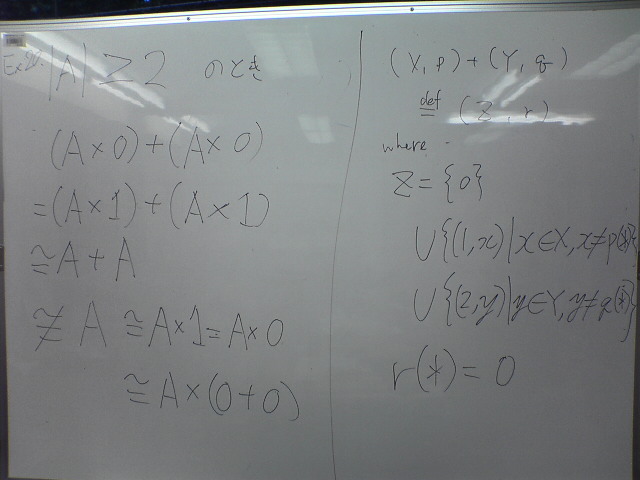 |A| ≥ 2 のとき
(A×0)+(A×0)
=(A×1)+(A×1)
≅A+A
≇A ≅A×1=A×0
≅A×(0+0)
(X,p)+(Y,q)
def
= (Z,r)
where
Z={0}
∪{(1,x)|x∈X,x≠p(*)}
∪{(2,y)|y∈Y,y≠q(*)}
r(*)=0